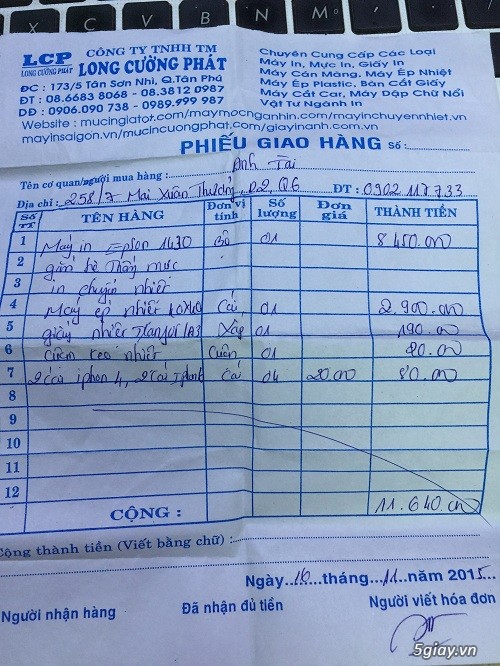 LCP
LONG CƯỜNG PHÁT
CÔNG TY TNHH TM
LONG CƯỜNG PHÁT
ĐC : 173/5 Tân Sơn Nhì, Q.Tân Phú
ĐT : 08.6683 8068 - 08.3812 0987
DĐ : 0906.090 738 - 0989.999 987
Chuyên Cung Cấp Các Loại
Máy In, Mực In, Giấy In
Máy Cán Màng, Máy Ép Nhiệt
Máy Ép Plastic, Bàn Cắt Giấy
Máy Cắt Car, Máy Dập Chữ Nổi
Vật Tư Ngành In
Website : mucingiatot.com/maymocnganhin.com/mayinchuyennhiet.vn
mayinsaigon.vn/mucincuongphat.com/giayinanh.com.vn
PHIẾU GIAO HÀNG Số:
Tên cơ quan/người mua hàng : Anh Tài
Địa chỉ : 258/7 Mai Xuân Thưởng, P2, Q6 ĐT : 0902 117733
Số TT TÊN HÀNG Đơn vị tính Số lượng Đơn giá THÀNH TIỀN
1 Máy in Epson 1430 Bộ 01 8 450.000
2 gắn hệ thống mực
3 in chuyển nhiệt
4 Máy ép nhiệt 40x60 Cái 01 2.900.000
5 giấy nhiệt A3 Xấp 01 190.000
6 keo nhiệt Cuộn 01 20.000
7 2 cái iphon 4, 2 cái Cái 04 20.000 80.000
8
9
10
11
12
CỘNG : 11.640.000
Cộng thành tiền (Viết bằng chữ) :
Ngày 16 tháng 11 năm 2015
Người nhận hàng Đã nhận đủ tiền Người viết hóa đơn
5giay.vn